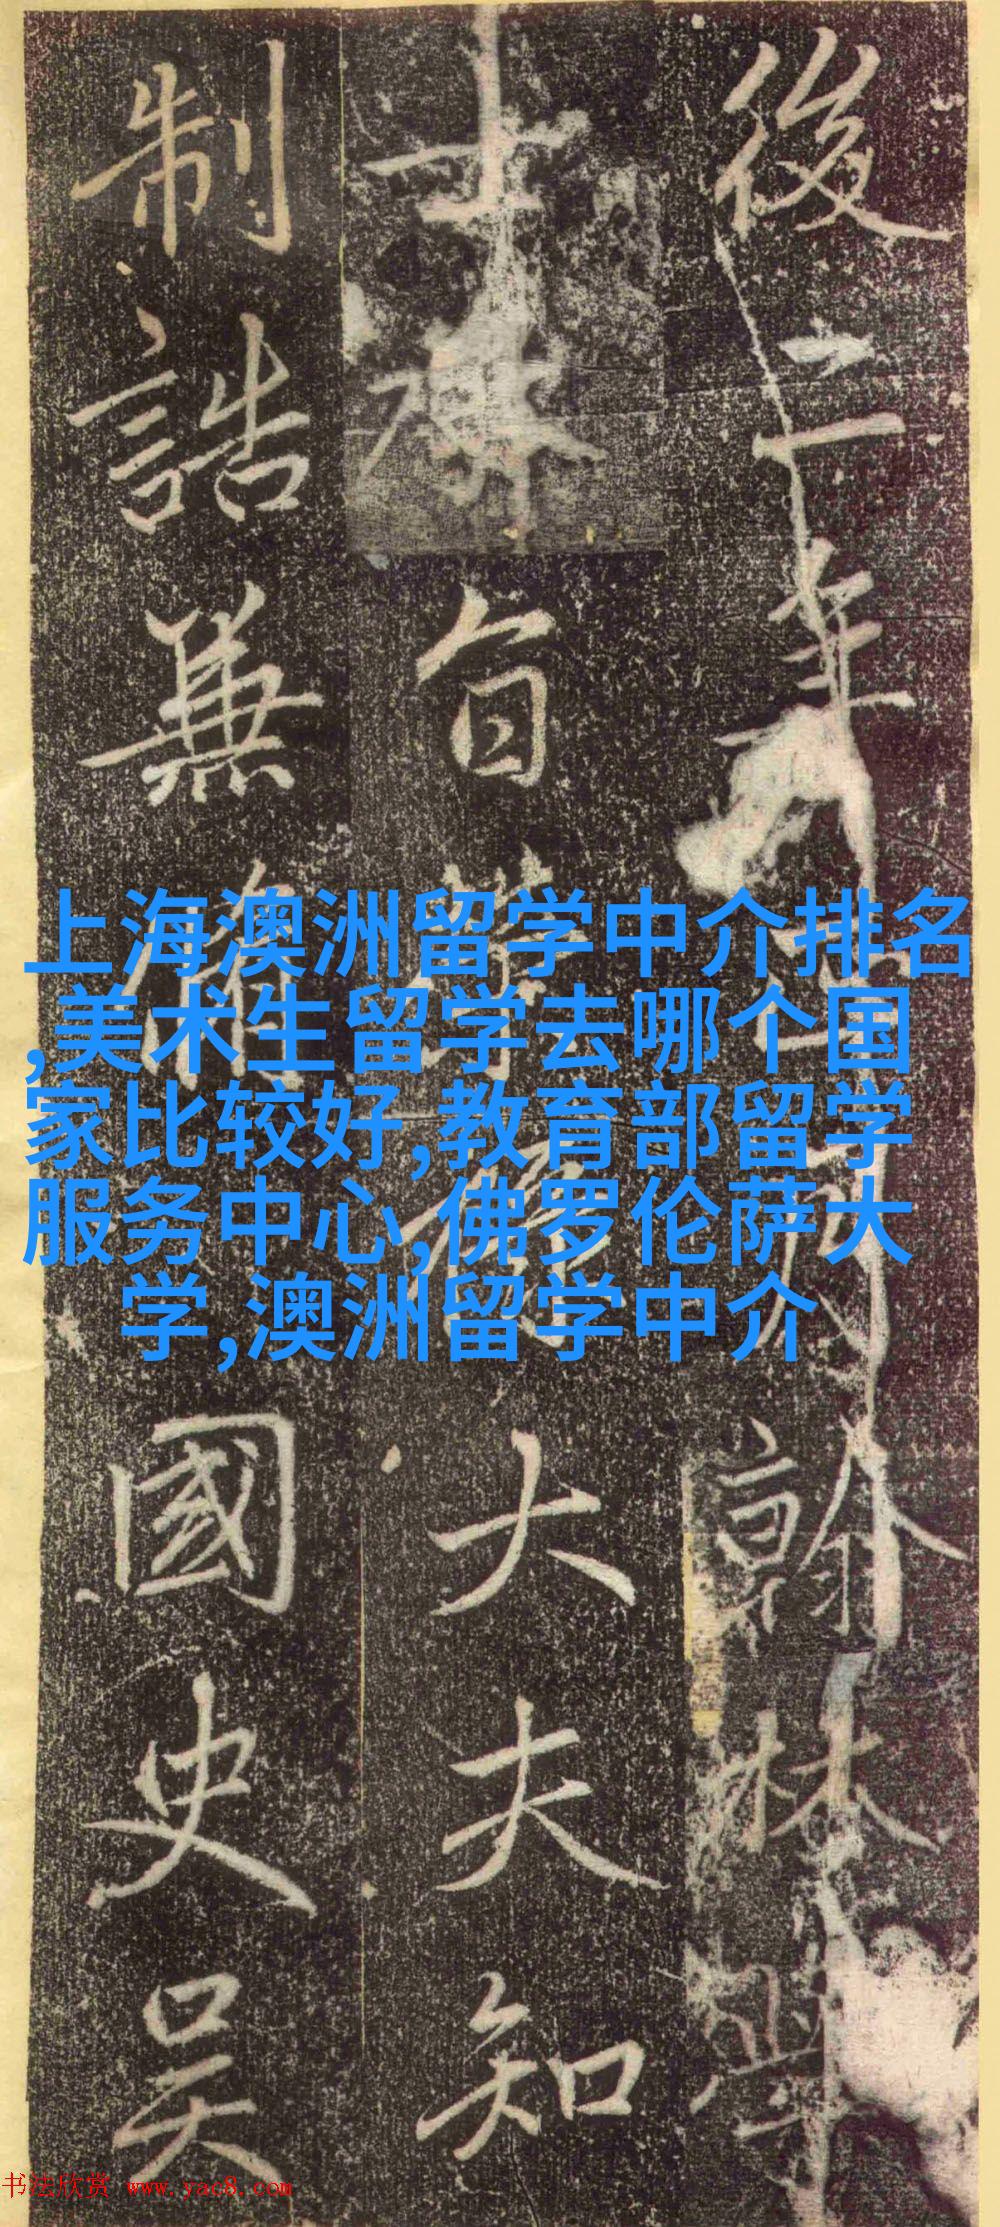 後二年正月翰林學
士承旨榮祿大夫知
制誥兼脩國史吳
上海澳洲留学中介排名
,美术生留学去哪个国
家比较好,教育部留学
服务中心,佛罗伦萨大
学,澳洲留学中介
书法欣赏 www.yac8.com